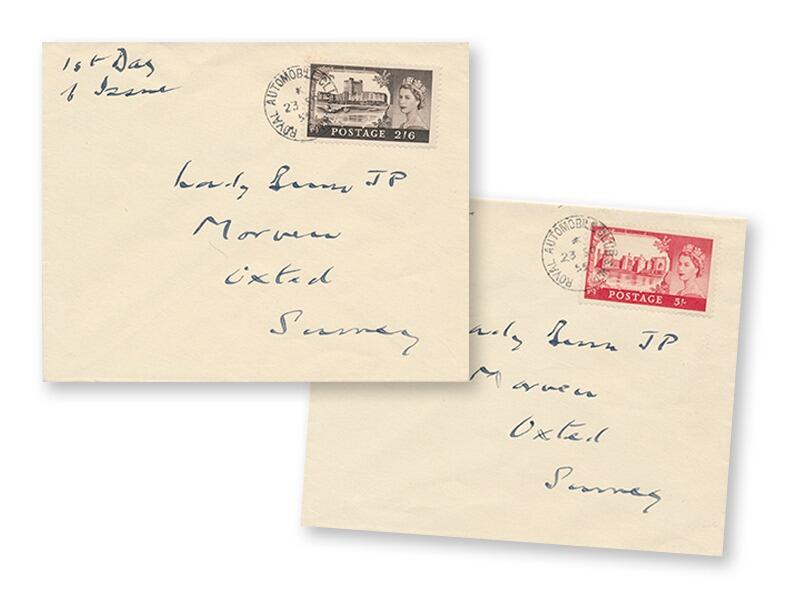 1st Day
of Issue
ROYAL AUTOMOBILE CLUB
23
POSTAGE 2/6
Lady Bunn JP
Morven
Oxted
Surrey
ROYAL AUTOMOBILE CLUB
23 SP
55
POSTAGE 5/-
ady Bunn JP
Morven
Oxted
Surrey